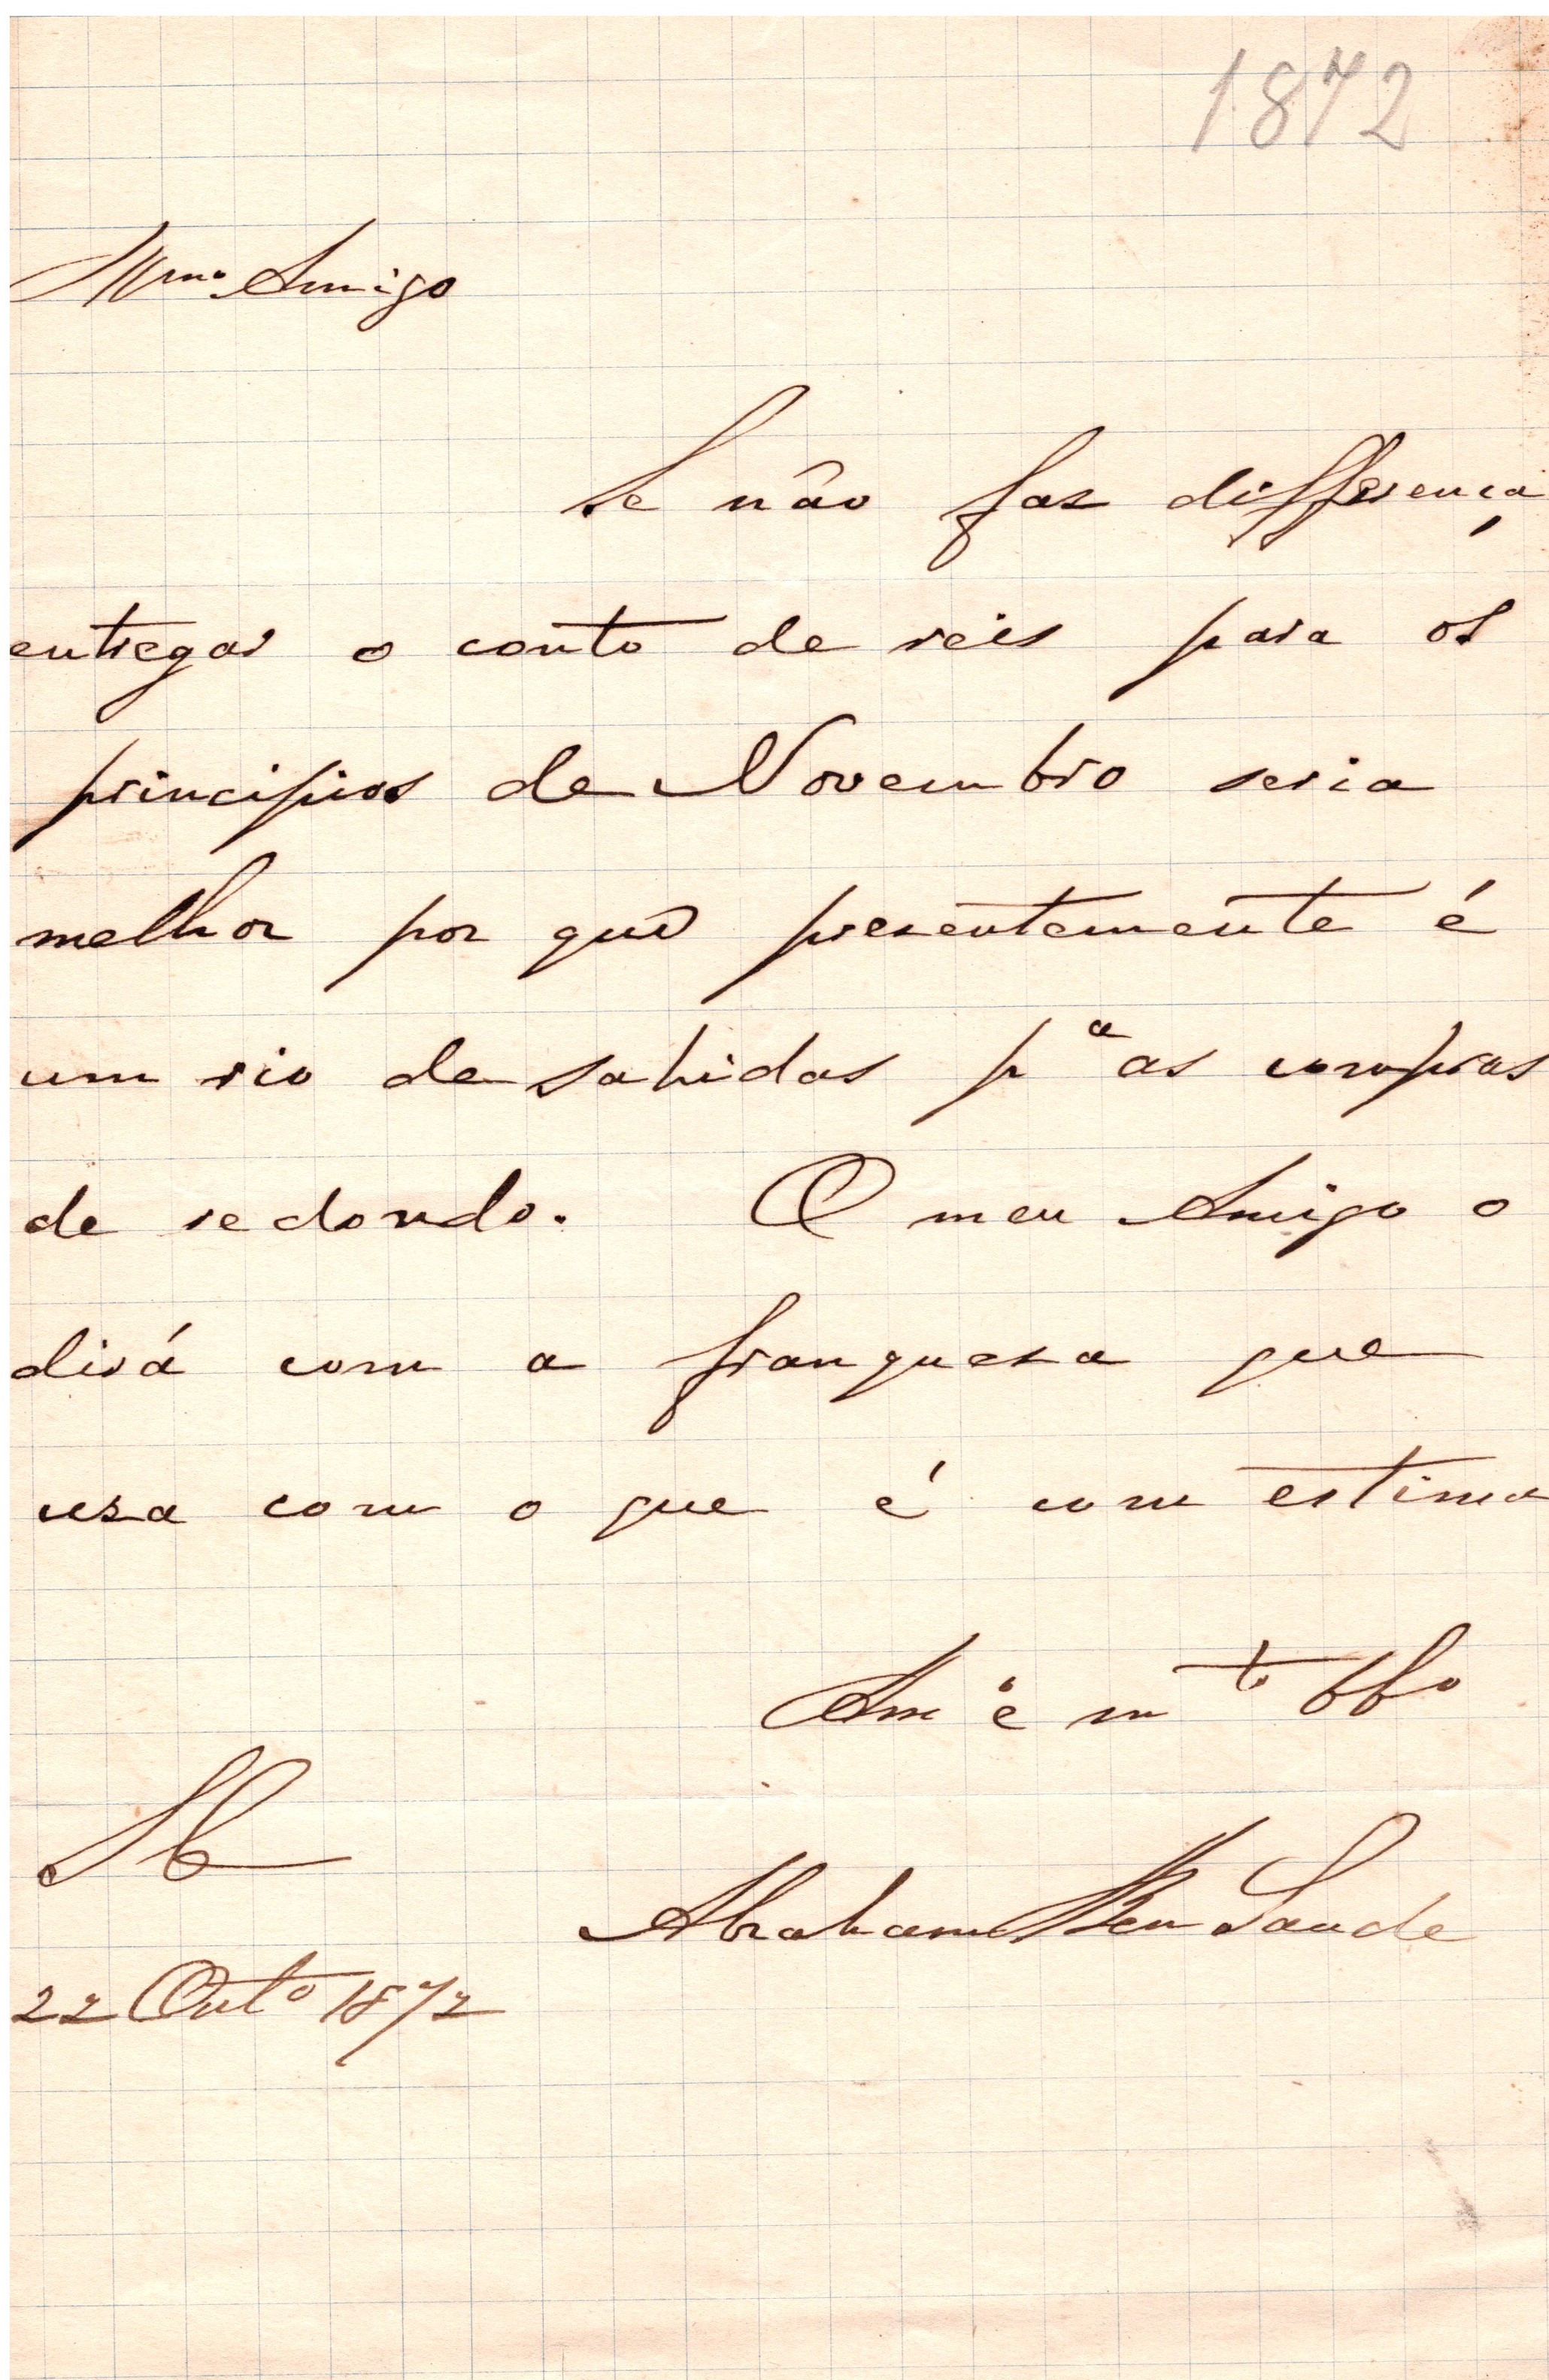 1872
Illmo Amigo
Se não faz differença
entregar o conto de reis para os
principios de Novembro seria
melhor por que presentemente é
um rio de sahidas pa as compras
de redondo. O meu Amigo o
dirá com a franqueza que
uza com o que é com estima
Am é mto
SC
Abraham BenSaude
22 Outo 1872